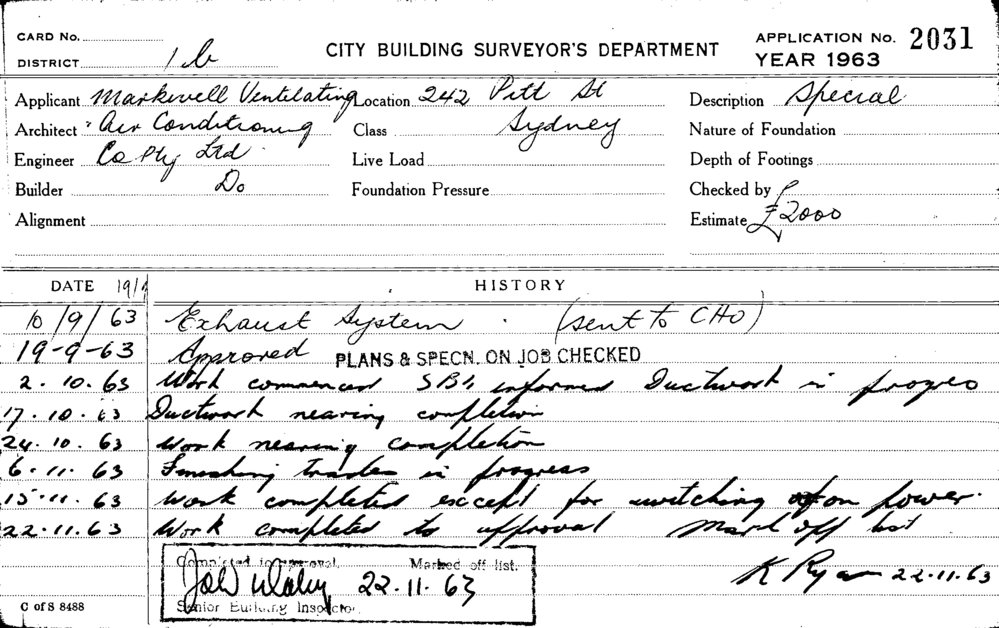 CARD No.
DISTRICT 1b
CITY BUILDING SURVEYOR'S DEPARTMENT
APPLICATION No. 2031
YEAR 1963
Applicant Markwell Ventilating Location 242 Pitt St Description Special
Architect " Air Conditioning Class Sydney Nature of Foundation
Engineer Co Pty Ltd Live Load Depth of Footings
Builder Do Foundation Pressure Checked by
Alignment Estimate £2000
DATE 19/ HISTORY
10/9/63 Exhaust System . (sent to CHO)
19-9-63 Approved PLANS & SPECN. ON JOB CHECKED
2.10.63 Work commenced SBI informed Ductwork in progres
17.10.63 Ductwork nearing completion
24.10.63 Work nearing completion
6.11.63 Finishing trades in progress
15.11.63 Work completed except for switching on power.
22.11.63 Work completed to approval Mark off list
Completed to approval. Marked off list.
22.11.63
K Ryan 22.11.63
Senior Building Inspector
C of S 8488